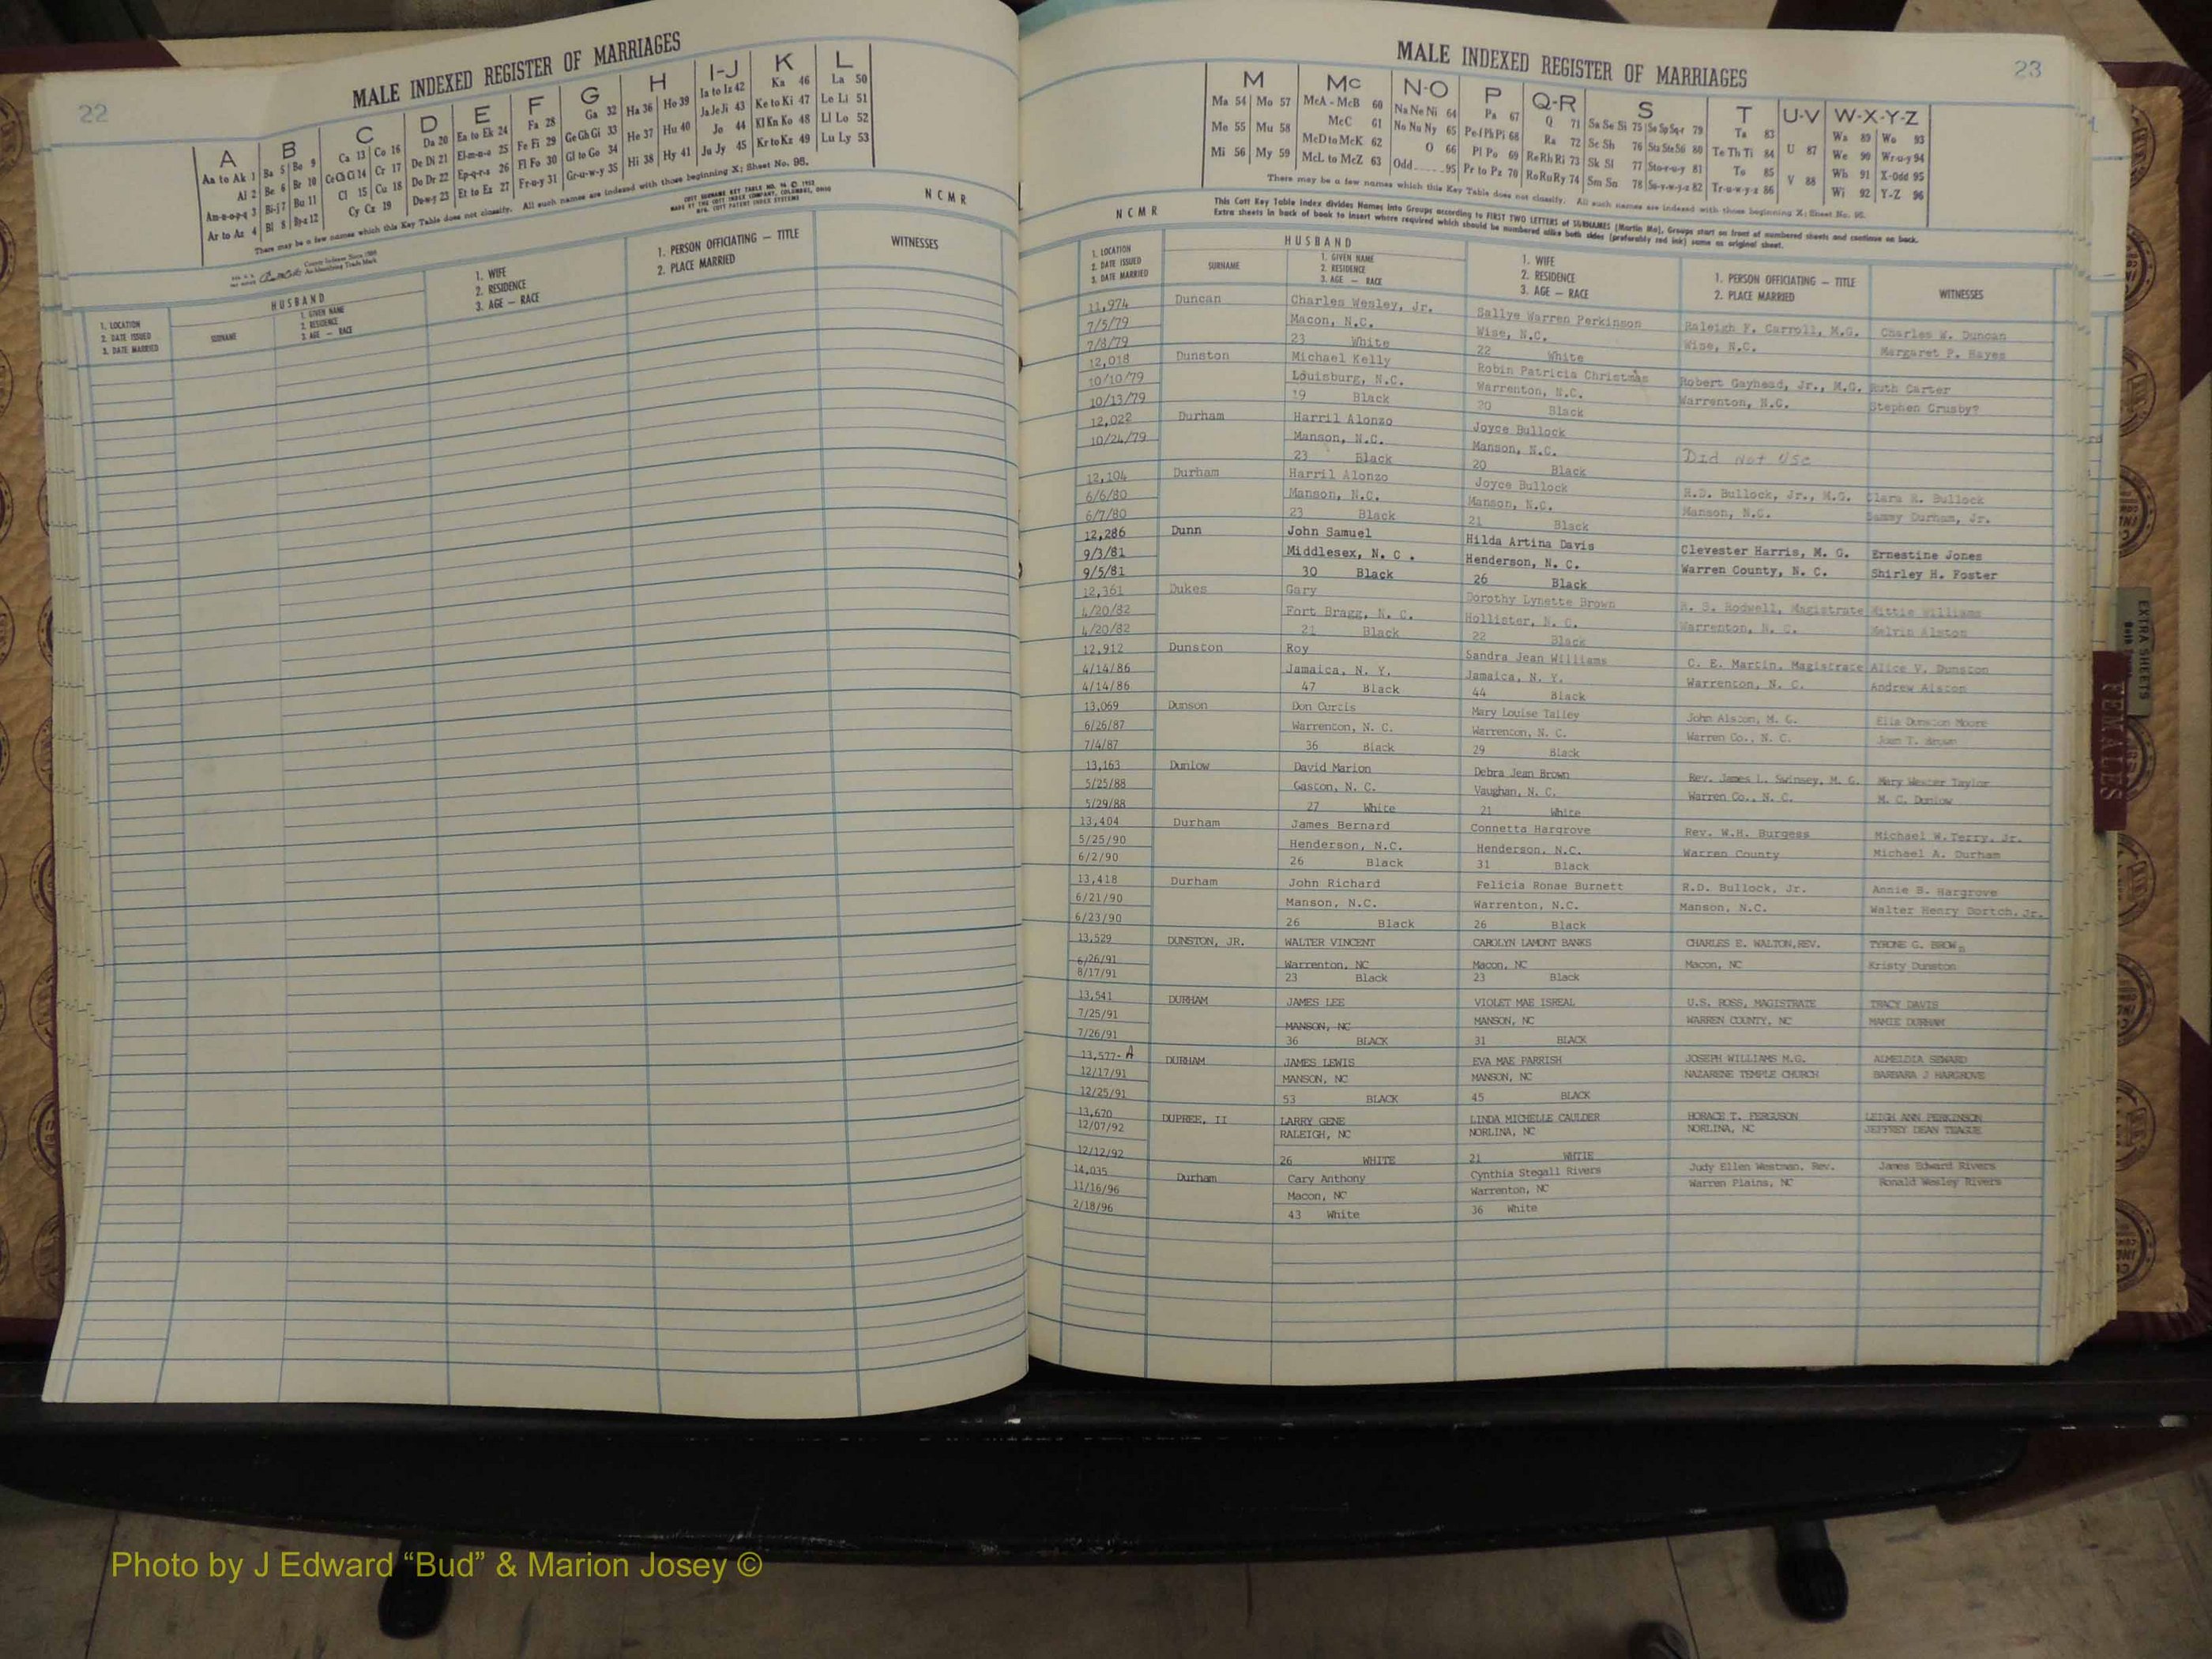 22
MALE INDEXED REGISTER OF MARRIAGES
A B C D E F G H I-J K L
Aa to Ak 1 Ba 5 Bo 9 Ca 13 Co 16 Da 20 Ea to Ek 24 Fa 28 Ga 32 Ha 36 Ho 39 Ia to Iz 42 Ka 46 La 50
Al 2 Be 6 Br 10 Ce Ch Ci 14 Cr 17 De Di 21 El-m-n-o 25 Fe Fi 29 Ge Gh Gi 33 He 37 Hu 40 Ja Je Ji 43 Ke to Ki 47 Le Li 51
Am-n-o-p-q 3 Bi-j 7 Bu 11 Cl 15 Cu 18 Do Dr 22 Ep-q-r-s 26 Fl Fo 30 Gl to Go 34 Hi 38 Hy 41 Jo 44 Kl Kn Ko 48 Ll Lo 52
Ar to Az 4 Bl 8 By-z 12 Cy Cz 19 Du-w-y 23 Et to Ez 27 Fr-u-y 31 Gr-u-w-y 35 Ju Jy 45 Kr to Kz 49 Lu Ly 53
There may be a few names which this Key Table does not classify. All such names are indexed with those beginning X; Sheet No. 95.
N C M R
HUSBAND
1. LOCATION
2. DATE ISSUED
3. DATE MARRIED
SURNAME
1. GIVEN NAME
2. RESIDENCE
3. AGE — RACE
1. WIFE
2. RESIDENCE
3. AGE — RACE
1. PERSON OFFICIATING — TITLE
2. PLACE MARRIED
WITNESSES
MALE INDEXED REGISTER OF MARRIAGES
23
M Mc N-O P Q-R S T U-V W-X-Y-Z
Ma 54 Mo 57 McA - McB 60 Na Ne Ni 64 Pa 67 Q 71 Sa Se Si 75 So Sp Sq-r 79 Ta 83 U 87 Wa 89 Wo 93
Me 55 Mu 58 McC 61 No Nu Ny 65 Pe-f Ph Pi 68 Ra 72 Sc Sh 76 Sta Ste Sti 80 Te Th Ti 84 We 90 Wr-u-y 94
Mi 56 My 59 McD to McK 62 O 66 Pl Po 69 Re Rh Ri 73 Sk Sl 77 Sto-r-u-y 81 To 85 V 88 Wh 91 X-Odd 95
McL to McZ 63 Odd 95 Pr to Pz 70 Ro Ru Ry 74 Sm Sn 78 Su-v-w-y-z 82 Tr-u-w-y-z 86 Wi 92 Y-Z 96
There may be a few names which this Key Table does not classify. All such names are indexed with those beginning X; Sheet No. 95.
N C M R
This Cott Key Table Index divides Names into Groups according to FIRST TWO LETTERS of SURNAMES (Martin Ma), Groups start on front of numbered sheets and continue on back.
Extra sheets in back of book to insert where required which should be numbered alike both sides (preferably red ink) same as original sheet.
HUSBAND
1. LOCATION
2. DATE ISSUED
3. DATE MARRIED
SURNAME
1. GIVEN NAME
2. RESIDENCE
3. AGE — RACE
1. WIFE
2. RESIDENCE
3. AGE — RACE
1. PERSON OFFICIATING — TITLE
2. PLACE MARRIED
WITNESSES
11,974 Duncan Charles Wesley, Jr. Sallye Warren Perkinson Raleigh F. Carroll, M.G. Charles W. Duncan
7/5/79 Macon, N.C. Wise, N.C. Wise, N.C. Margaret P. Hayes
7/8/79 23 White 22 White
12,018 Dunston Michael Kelly Robin Patricia Christmas Robert Gayhead, Jr., M.G. Ruth Carter
10/10/79 Louisburg, N.C. Warrenton, N.C. Warrenton, N.C. Stephen Crusby?
10/13/79 19 Black 20 Black
12,022 Durham Harril Alonzo Joyce Bullock
10/24/79 Manson, N.C. Manson, N.C. Did Not Use
23 Black 20 Black
12,104 Durham Harril Alonzo Joyce Bullock R.D. Bullock, Jr., M.G. Clara R. Bullock
6/6/80 Manson, N.C. Manson, N.C. Manson, N.C. Sammy Durham, Jr.
6/7/80 23 Black 21 Black
12,286 Dunn John Samuel Hilda Artina Davis Clevester Harris, M. G. Ernestine Jones
9/3/81 Middlesex, N. C . Henderson, N. C. Warren County, N. C. Shirley H. Foster
9/5/81 30 Black 26 Black
12,361 Dukes Gary Dorothy Lynette Brown R. S. Rodwell, Magistrate Mittie Williams
4/20/82 Fort Bragg, N. C. Hollister, N. C. Warrenton, N. C. Melvin Alston
4/20/82 21 Black 22 Black
12,912 Dunston Roy Sandra Jean Williams C. E. Martin, Magistrate Alice V. Dunston
4/14/86 Jamaica, N. Y. Jamaica, N. Y. Warrenton, N. C. Andrew Alston
4/14/86 47 Black 44 Black
13,069 Dunson Don Curtis Mary Louise Talley John Alston, M. G. Ella Dunston Moore
6/26/87 Warrenton, N. C. Warrenton, N. C. Warren Co., N. C. Joan T. Brown
7/4/87 36 Black 29 Black
13,163 Dunlow David Marion Debra Jean Brown Rev. James L. Swinsey, M. G. Mary Wester Taylor
5/25/88 Gaston, N. C. Vaughan, N. C. Warren Co., N. C. M. C. Dunlow
5/29/88 27 White 21 White
13,404 Durham James Bernard Connetta Hargrove Rev. W.H. Burgess Michael W.Terry, Jr.
5/25/90 Henderson, N.C. Henderson, N.C. Warren County Michael A. Durham
6/2/90 26 Black 31 Black
13,418 Durham John Richard Felicia Ronae Burnett R.D. Bullock, Jr. Annie B. Hargrove
6/21/90 Manson, N.C. Warrenton, N.C. Manson, N.C. Walter Henry Dortch,Jr.
6/23/90 26 Black 26 Black
13,529 DUNSTON, JR. WALTER VINCENT CAROLYN LAMONT BANKS CHARLES E. WALTON,REV. TYRONE G. BROWn
6/26/91 Warrenton, NC Macon, NC Macon, NC Kristy Dunston
8/17/91 23 Black 23 Black
13,541 DURHAM JAMES LEE VIOLET MAE ISREAL U.S. ROSS, MAGISTRATE TRACY DAVIS
7/25/91 MANSON, NC MANSON, NC WARREN COUNTY, NC MAMIE DURHAM
7/26/91 36 BLACK 31 BLACK
13,577-A DURHAM JAMES LEWIS EVA MAE PARRISH JOSEPH WILLIAMS M.G. ALMELDIA SEWARD
12/17/91 MANSON, NC MANSON, NC NAZARENE TEMPLE CHURCH BARBARA J HARGROVE
12/25/91 53 BLACK 45 BLACK
13,670 DUPREE, II LARRY GENE LINDA MICHELLE CAULDER HORACE T. FERGUSON LEIGH ANN PERKINSON
12/07/92 RALEIGH, NC NORLINA, NC NORLINA, NC JEFFREY DEAN TEAGUE
12/12/92 26 WHITE 21 WHTIE
14,035 Durham Cary Anthony Cynthia Stegall Rivers Judy Ellen Westman, Rev. James Edward Rivers
11/16/96 Macon, NC Warrenton, NC Warren Plains, NC Ronald Wesley Rivers
2/18/96 43 White 36 White
EXTRA SHEETS
FEMALES
Photo by J Edward “Bud” & Marion Josey ©